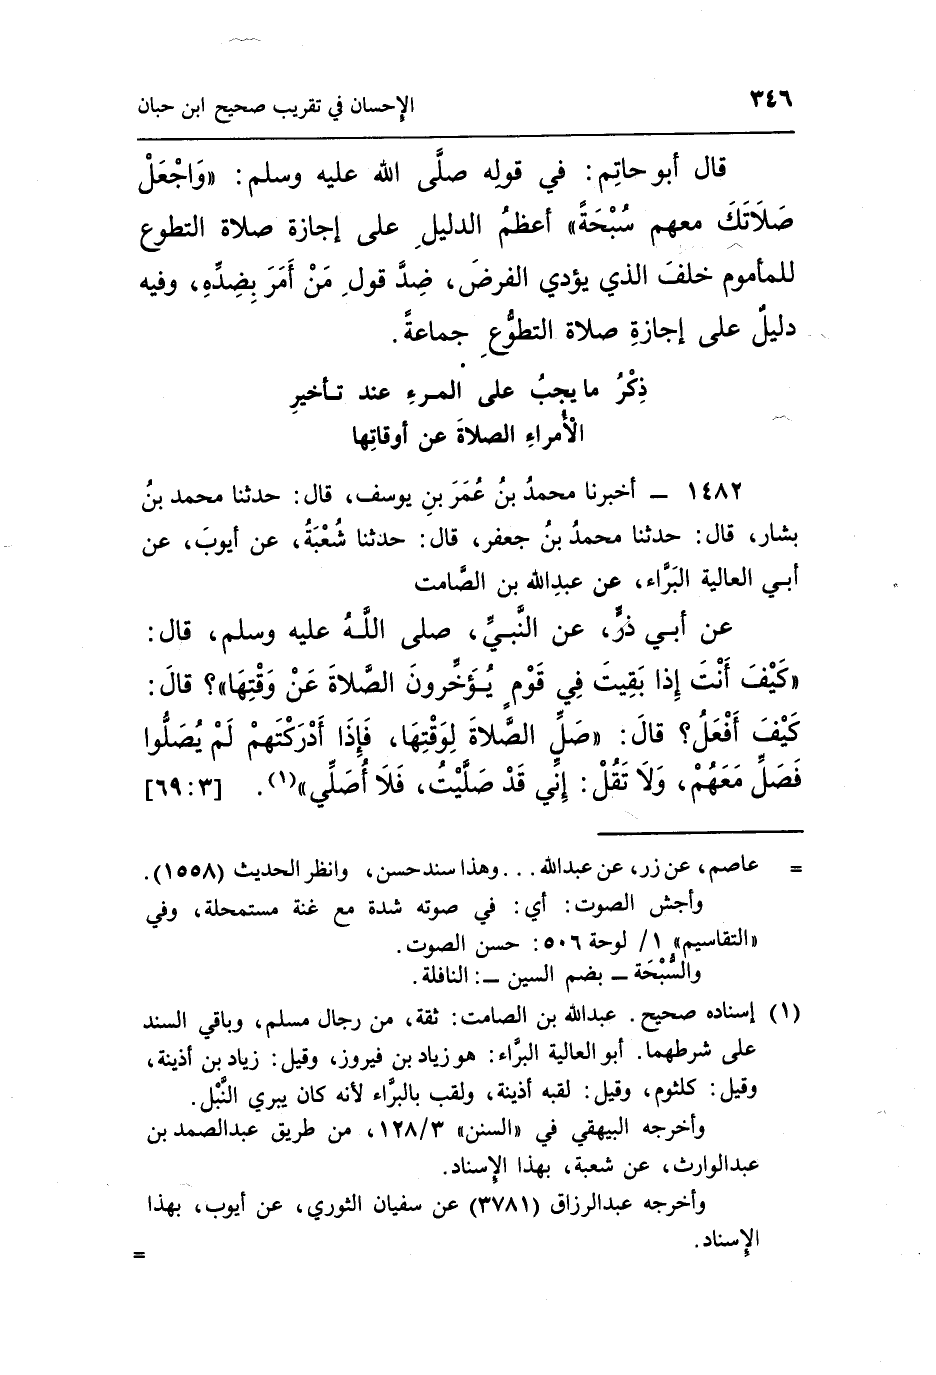 ٣٤٦ الإحسان في تقريب صحيح ابن حبان
قال أبو حاتِم: في قولِه صلَّى الله عليه وسلم: «وَاجْعَلْ
صَلَاتَكَ معهم سُبْحَةً» أعظمُ الدليلِ على إجازة صلاة التطوع
للمأموم خلفَ الذي يؤدي الفرضَ، ضِدَّ قولِ مَنْ أَمَرَ بِضِدِّهِ، وفيه
دليلٌ على إجازةِ صلاة التطوُّعِ جماعةً.
ذِكْرُ ما يجبُ على المرءِ عند تأخيرِ
الْأُمراءِ الصلاةَ عن أوقاتِها
١٤٨٢ ــ أخبرنا محمدُ بنُ عُمَرَ بنِ يوسف، قال: حدثنا محمد بنُ
بشار، قال: حدثنا محمدُ بنُ جعفر، قال: حدثنا شُعْبَةُ، عن أيوبَ، عن
أبي العالية البَرَّاء، عن عبدِالله بن الصَّامت
عن أبي ذرٍّ، عن النَّبيِّ، صلى اللَّهُ عليه وسلم، قال:
«كَيْفَ أَنْتَ إِذا بَقِيتَ فِي قَوْمٍ يُؤَخِّرونَ الصَّلاةَ عَنْ وَقْتِهَا»؟ قالَ:
كَيْفَ أَفْعَلُ؟ قالَ: «صَلِّ الصَّلاةَ لِوَقْتِهَا، فَإِذَا أَدْرَكْتَهمْ لَمْ يُصَلُّوا
فَصَلِّ مَعَهُمْ، وَلَا تَقُلْ: إِنِّي قَدْ صَلَّيْتُ، فَلَا أُصَلِّي»(١). [٦٩:٣]
= عاصم، عن زر، عن عبدالله . . . وهذا سند حسن، وانظر الحديث (١٥٥٨).
وأجش الصوت: أي: في صوته شدة مع غنة مستمحلة، وفي
«التقاسيم» ١/ لوحة ٥٠٦: حسن الصوت.
والسُّبْحَة ــ بضم السين ــ: النافلة.
(١) إسناده صحيح. عبدالله بن الصامت: ثقة، من رجال مسلم، وباقي السند
على شرطهما. أبو العالية البرَّاء: هو زياد بن فيروز، وقيل: زياد بن أذينة،
وقيل: كلثوم، وقيل: لقبه أذينة، ولقب بالبرَّاء لأنه كان يبري النَّبْل.
وأخرجه البيهقي في «السنن» ١٢٨/٣، من طريق عبدالصمد بن
عبدالوارث، عن شعبة، بهذا الإسناد.
وأخرجه عبدالرزاق (٣٧٨١) عن سفيان الثوري، عن أيوب، بهذا
الإسناد. =